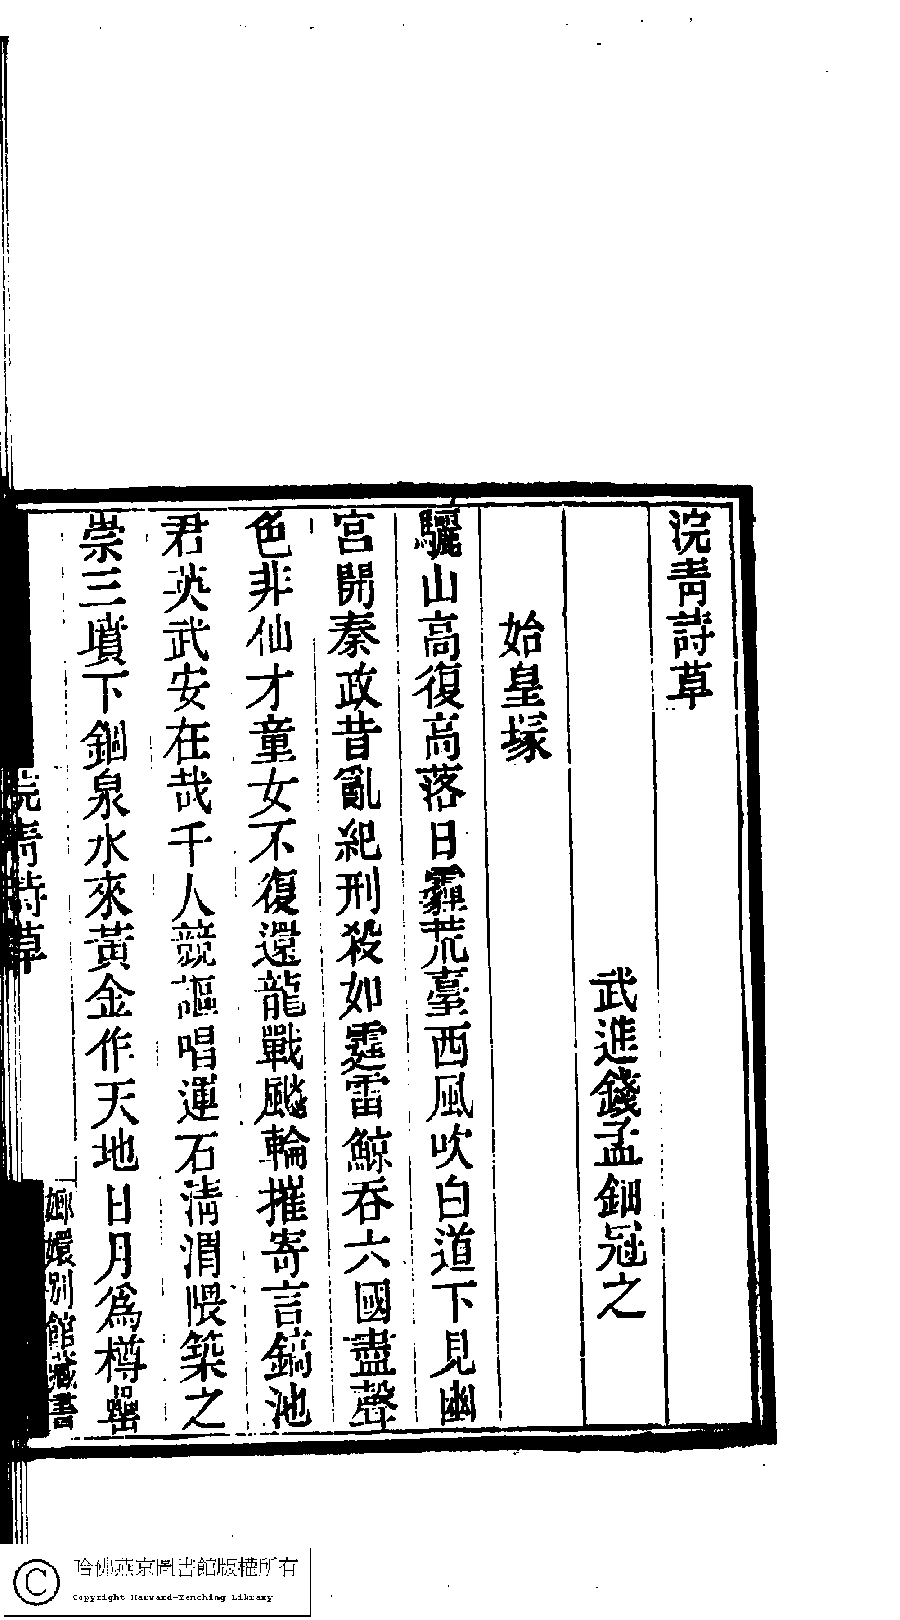 浣青詩草
武進錢孟鈿冠之
始皇塚
驪山高復高落日霾荒臺西風吹白道下見幽
宮開秦政昔亂紀刑殺如霆雷鯨吞六國盡聲
色非仙才童女不復還龍戰飈輪摧寄言鎬池
君英武安在哉千人競謳唱運石淸渭隈築之
崇三墳下錮泉水來黃金作天地日月爲樽罍
浣青詩草
嫏嬛別館藏書
哈佛燕京圖書館版權所有
Copyright Harvard-Yenching Library